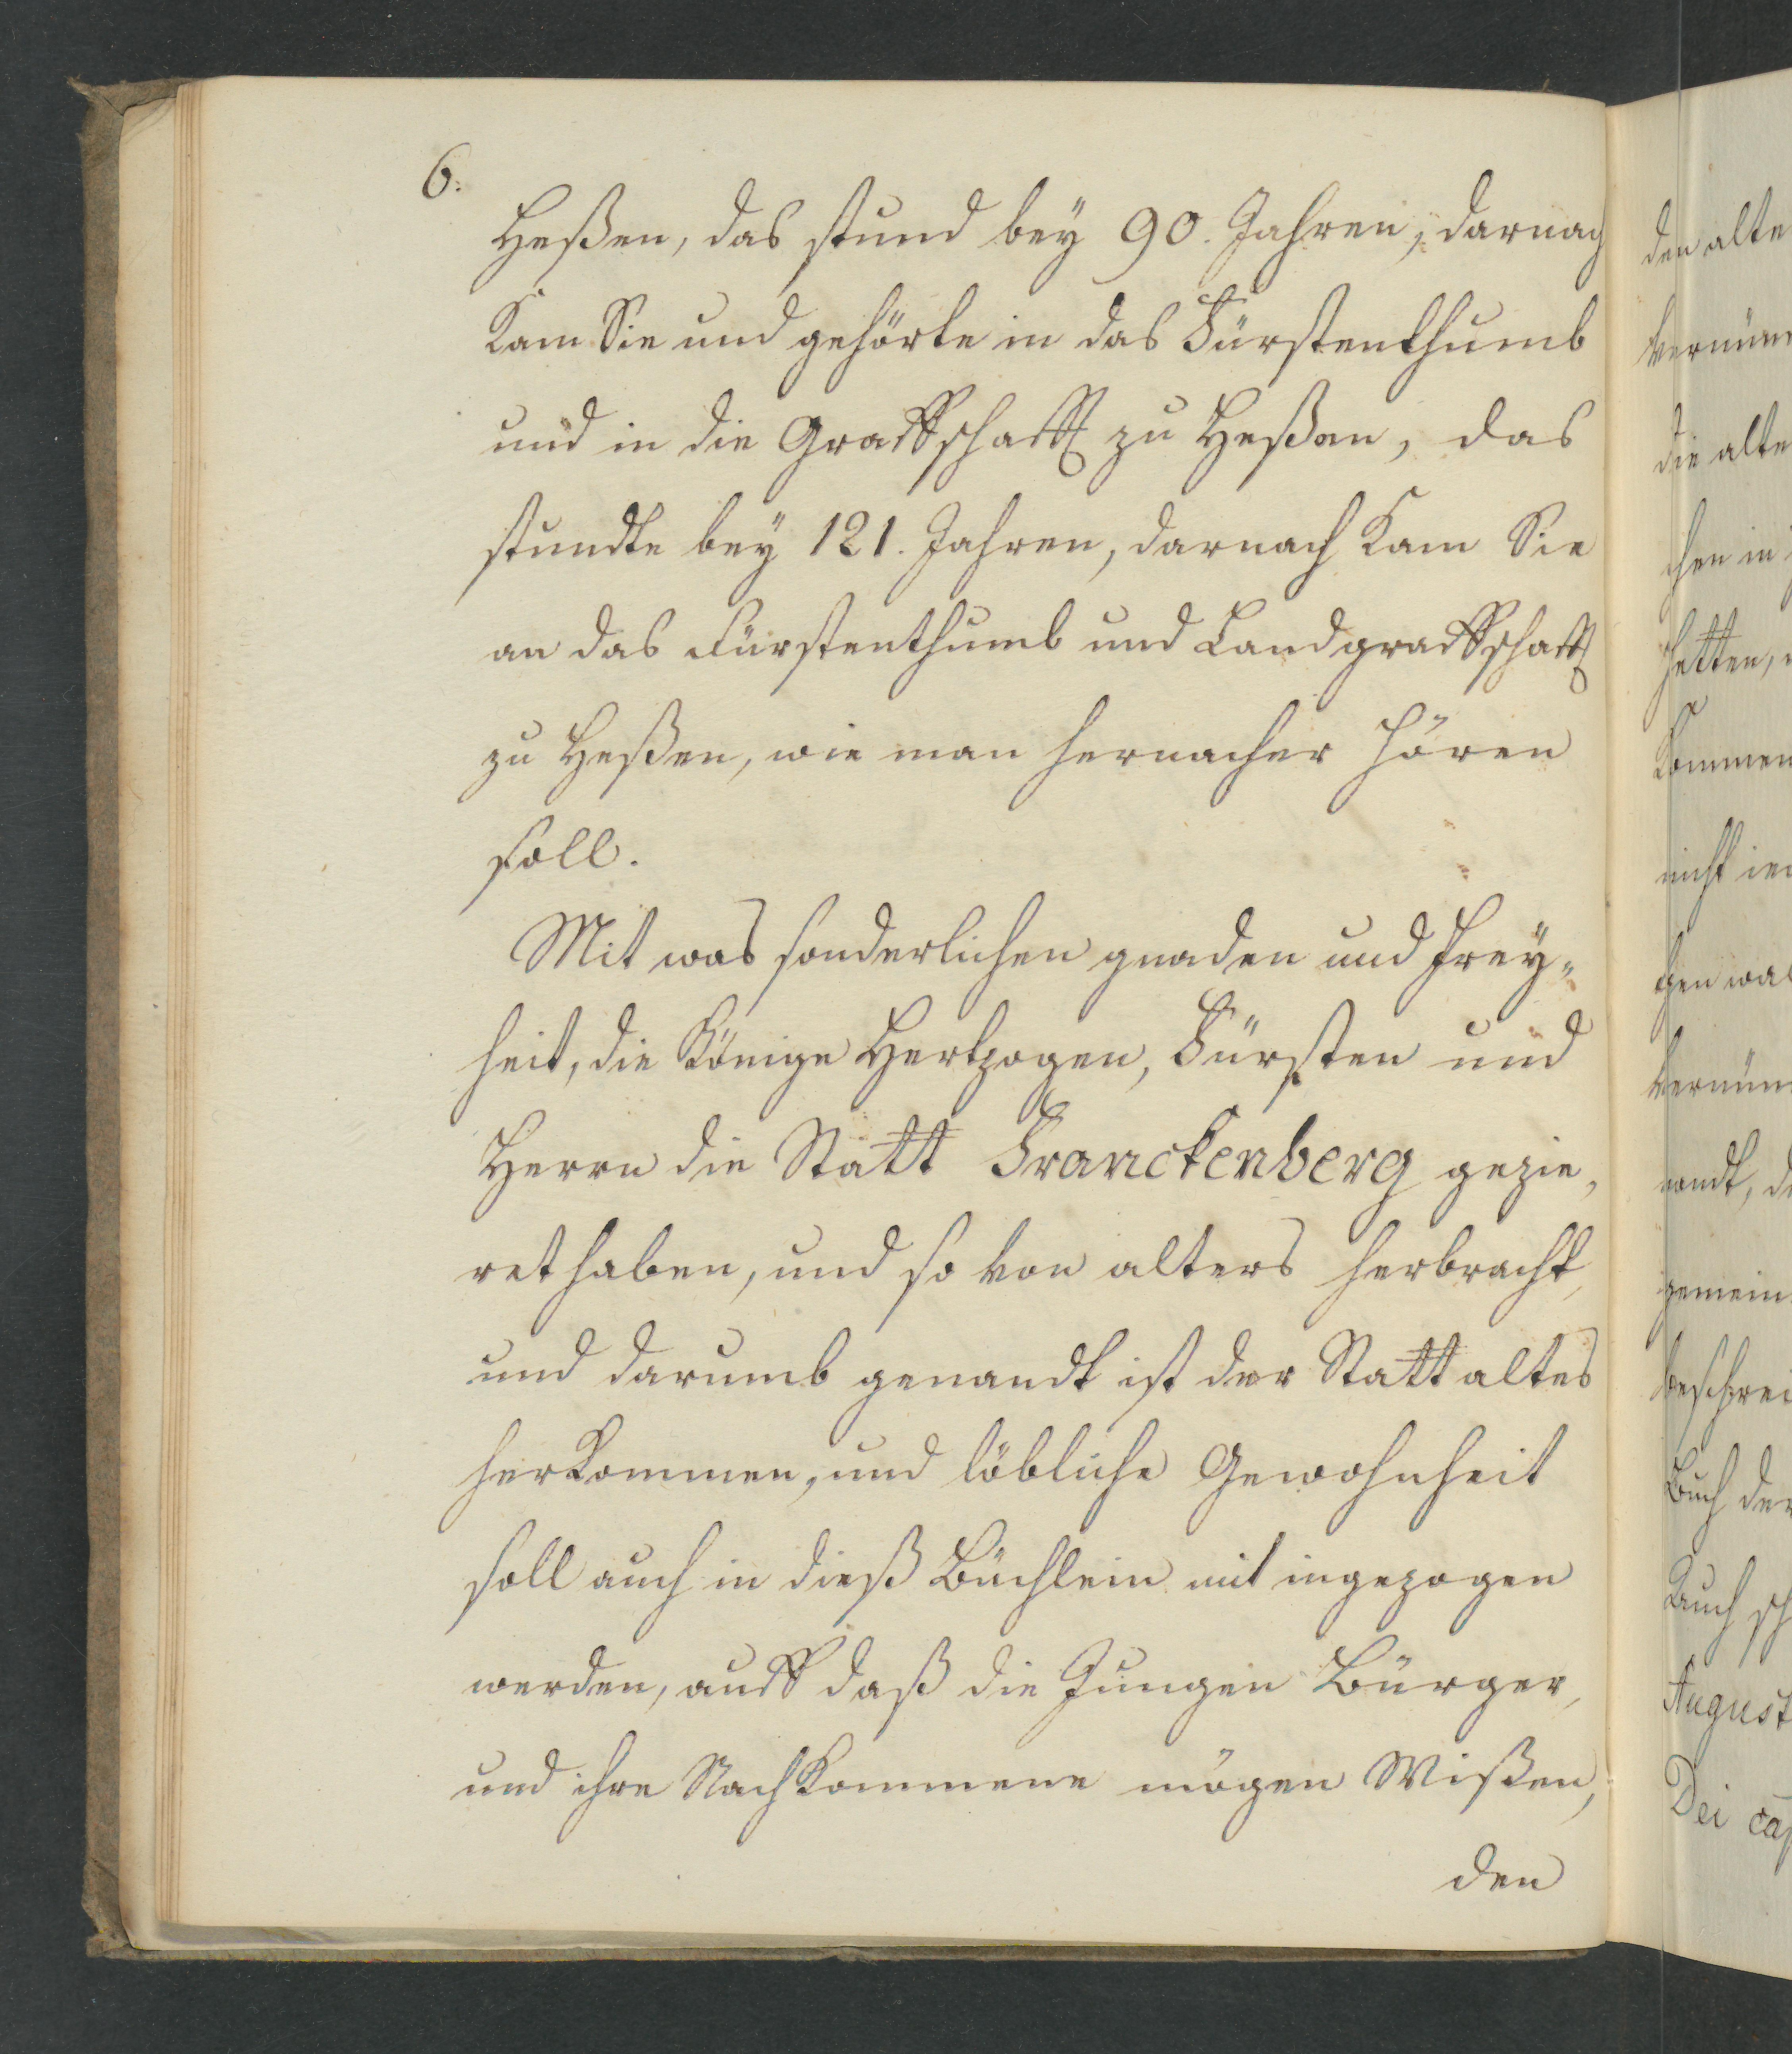 6.
Heßen, das stund bey 90. Jahren, darnach
Kam Sie und gehörte in das Fürstenthumb
und in die Graffschafft zu Heßen, das
stundte bey 121. Jahren, darnach Kam Sie
an das Fürstenthumb und Landgraffschafft
zu Heßen, wie man hernacher hören
soll.
Mit was sonderlichen gnaden und frey-
heit, die Könige Hertzogen, Fürsten und
Herrn die Statt Franckenberg gezie,
ret haben, und so von alters herbracht,
und darumb genandt ist der Statt altes
herkommen, und löbliche Gewohnheit
soll auch in dieß Büchlein mit ingezogen
werden, auff daß die Jungen Bürger,
und ihre Nachkommene mögen Wißen,
den
den alte
die alte
chen in
hetten,
kommen
nicht
gemein
Buch der
Auch sch
August
Dei cap